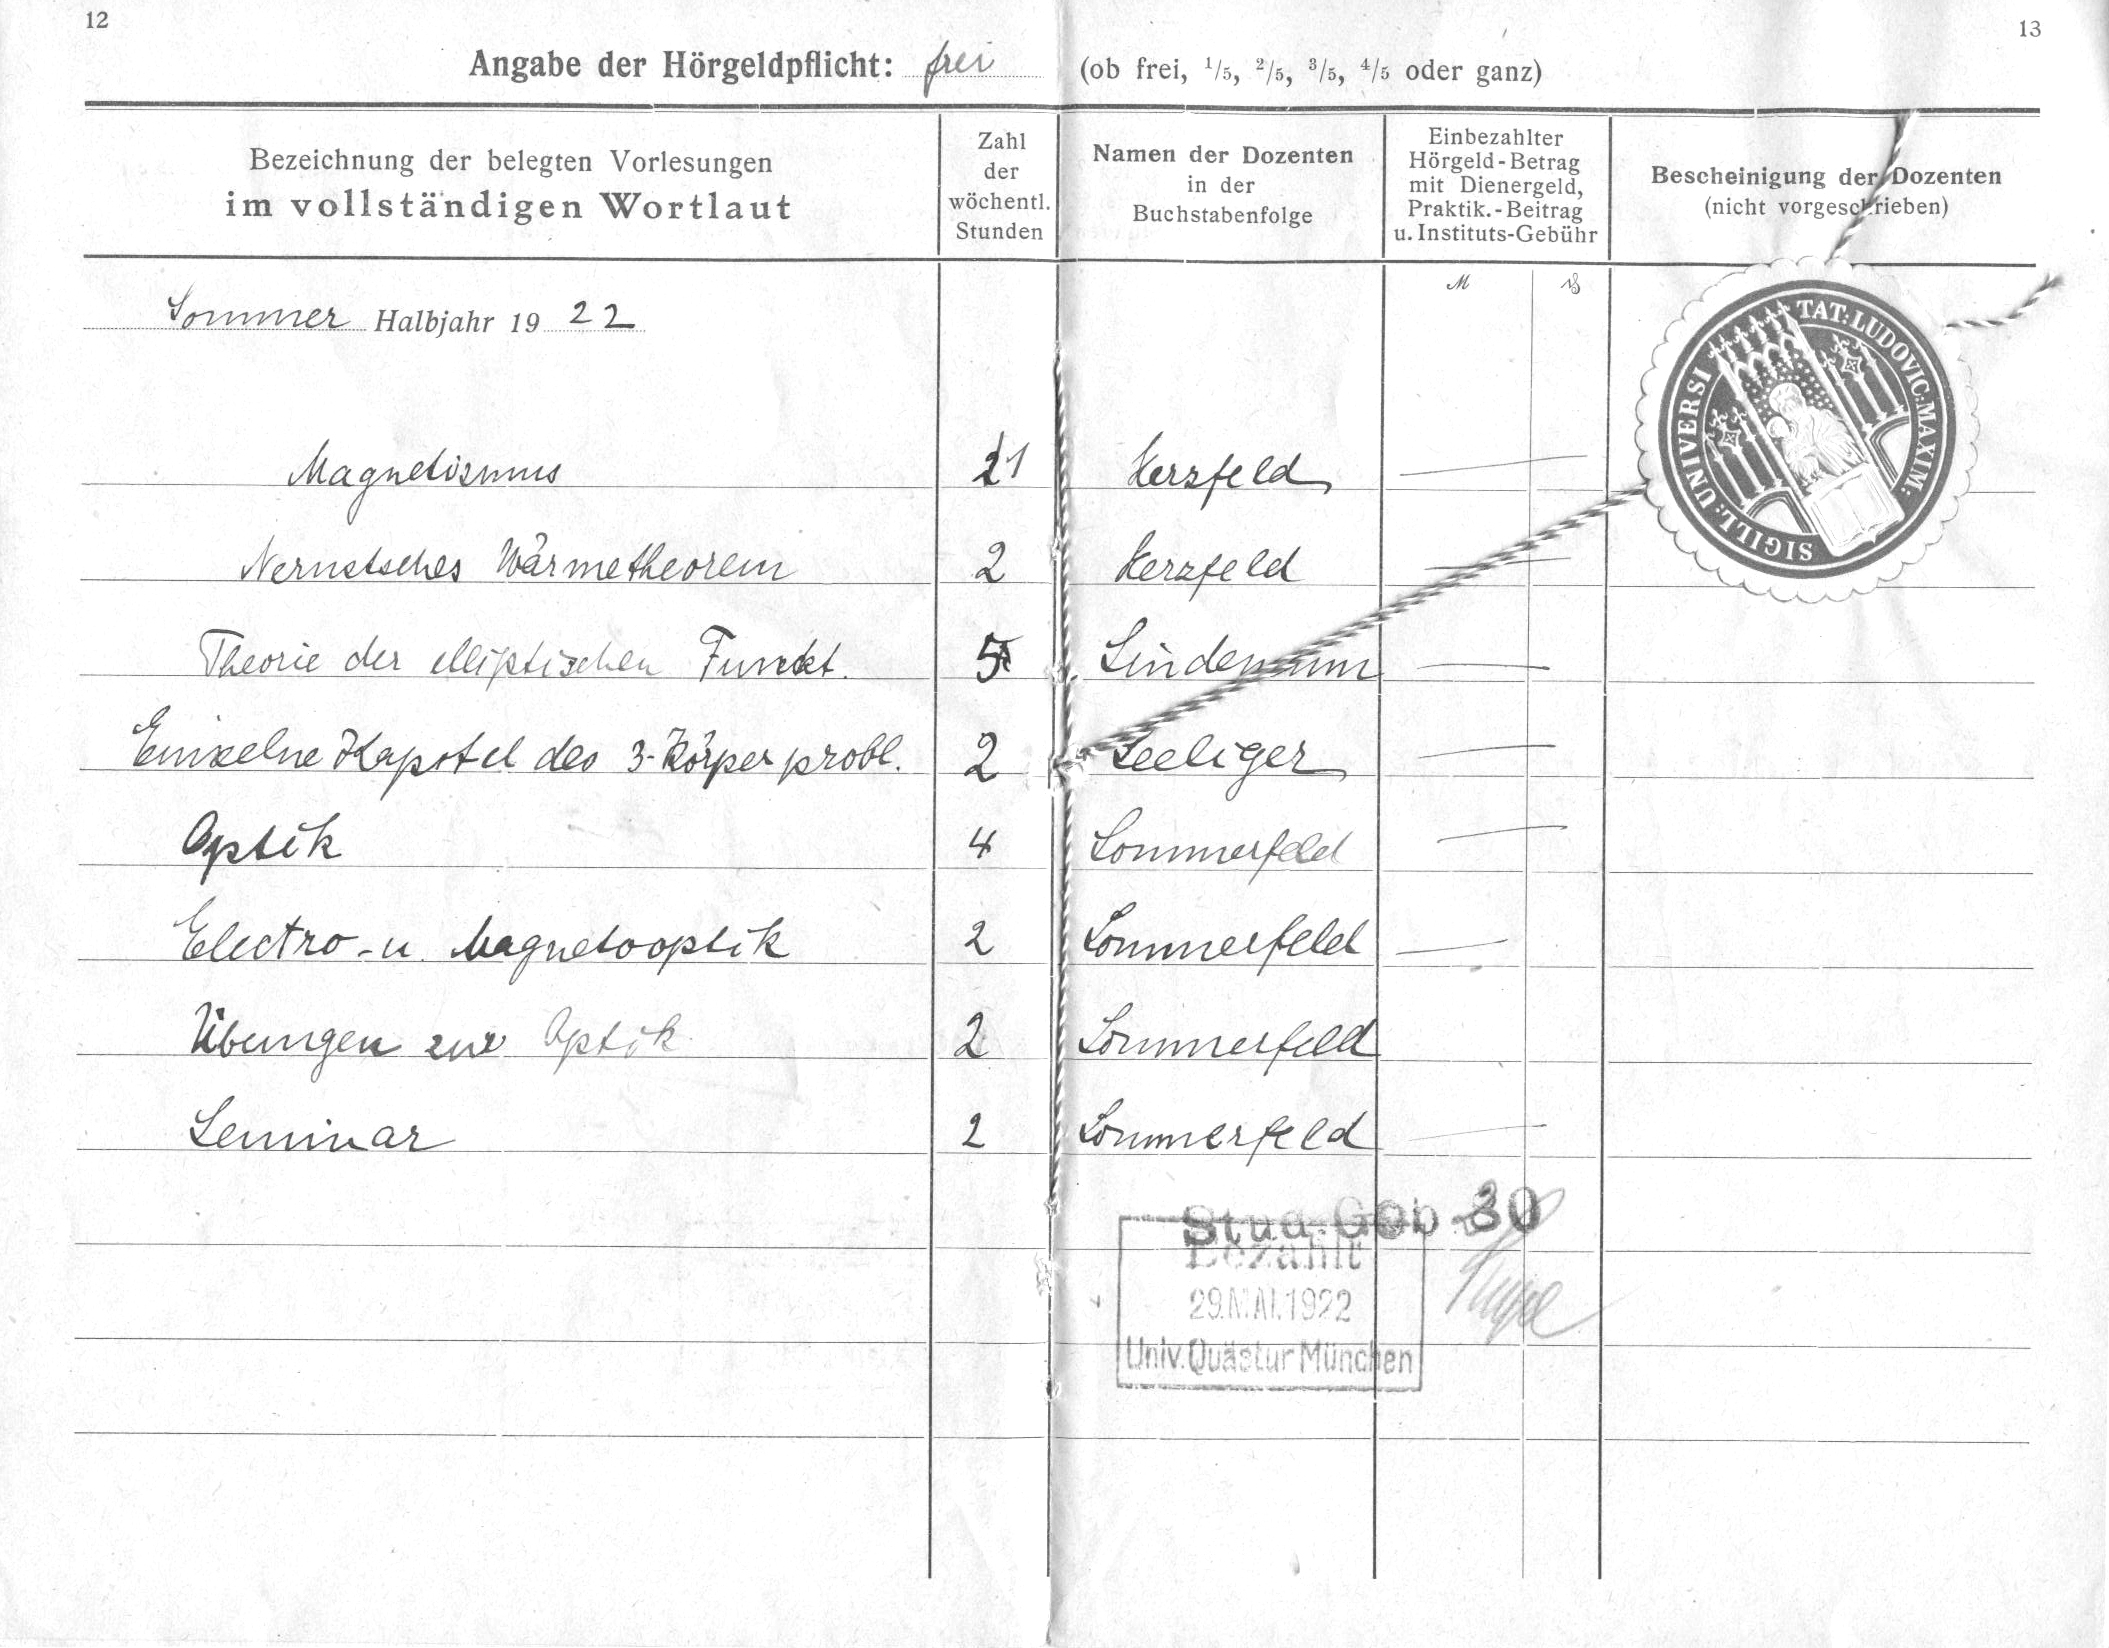 12
13
Angabe der Hörgeldpflicht: frei (ob frei, 1/5, 2/5, 3/5, 4/5 oder ganz)
Bezeichnung der belegten Vorlesungen
im vollständigen Wortlaut
Zahl
der
wöchentl.
Stunden
Namen der Dozenten
in der
Buchstabenfolge
Einbezahlter
Hörgeld-Betrag
mit Dienergeld,
Praktik.-Beitrag
u. Instituts-Gebühr
Bescheinigung der Dozenten
(nicht vorgeschrieben)
M
Sommer Halbjahr 1922
SIGILL: UNIVERSITAT: LUDOVIC: MAXIM:
Magnetismus 1 Herzfeld —
Nernstsches Wärmetheorem 2 Herzfeld —
Theorie der elliptischen Funkt. 5 Lindemann —
Einzelne Kapitel des 3-Körperprobl. 2 Seeliger —
Optik 4 Sommerfeld —
Electro- u. Magnetooptik 2 Sommerfeld —
Übungen zur Optik 2 Sommerfeld
Seminar 2 Sommerfeld —
Stud. Geb 30
Bezahlt
29. MAI. 1922
Univ. Quästur München